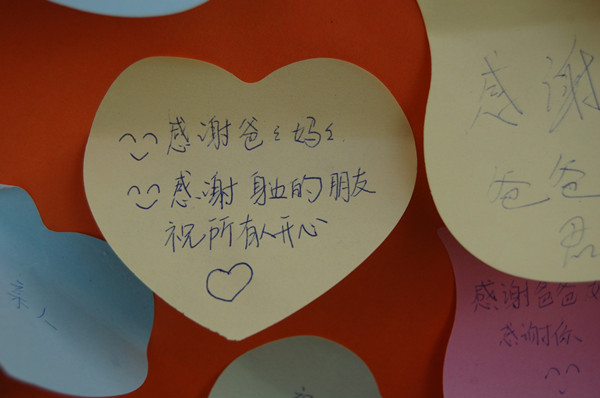 感谢爸々妈々.
感谢 身边的朋友
祝所有人开心
感谢
爸爸
感谢爸爸
感谢你